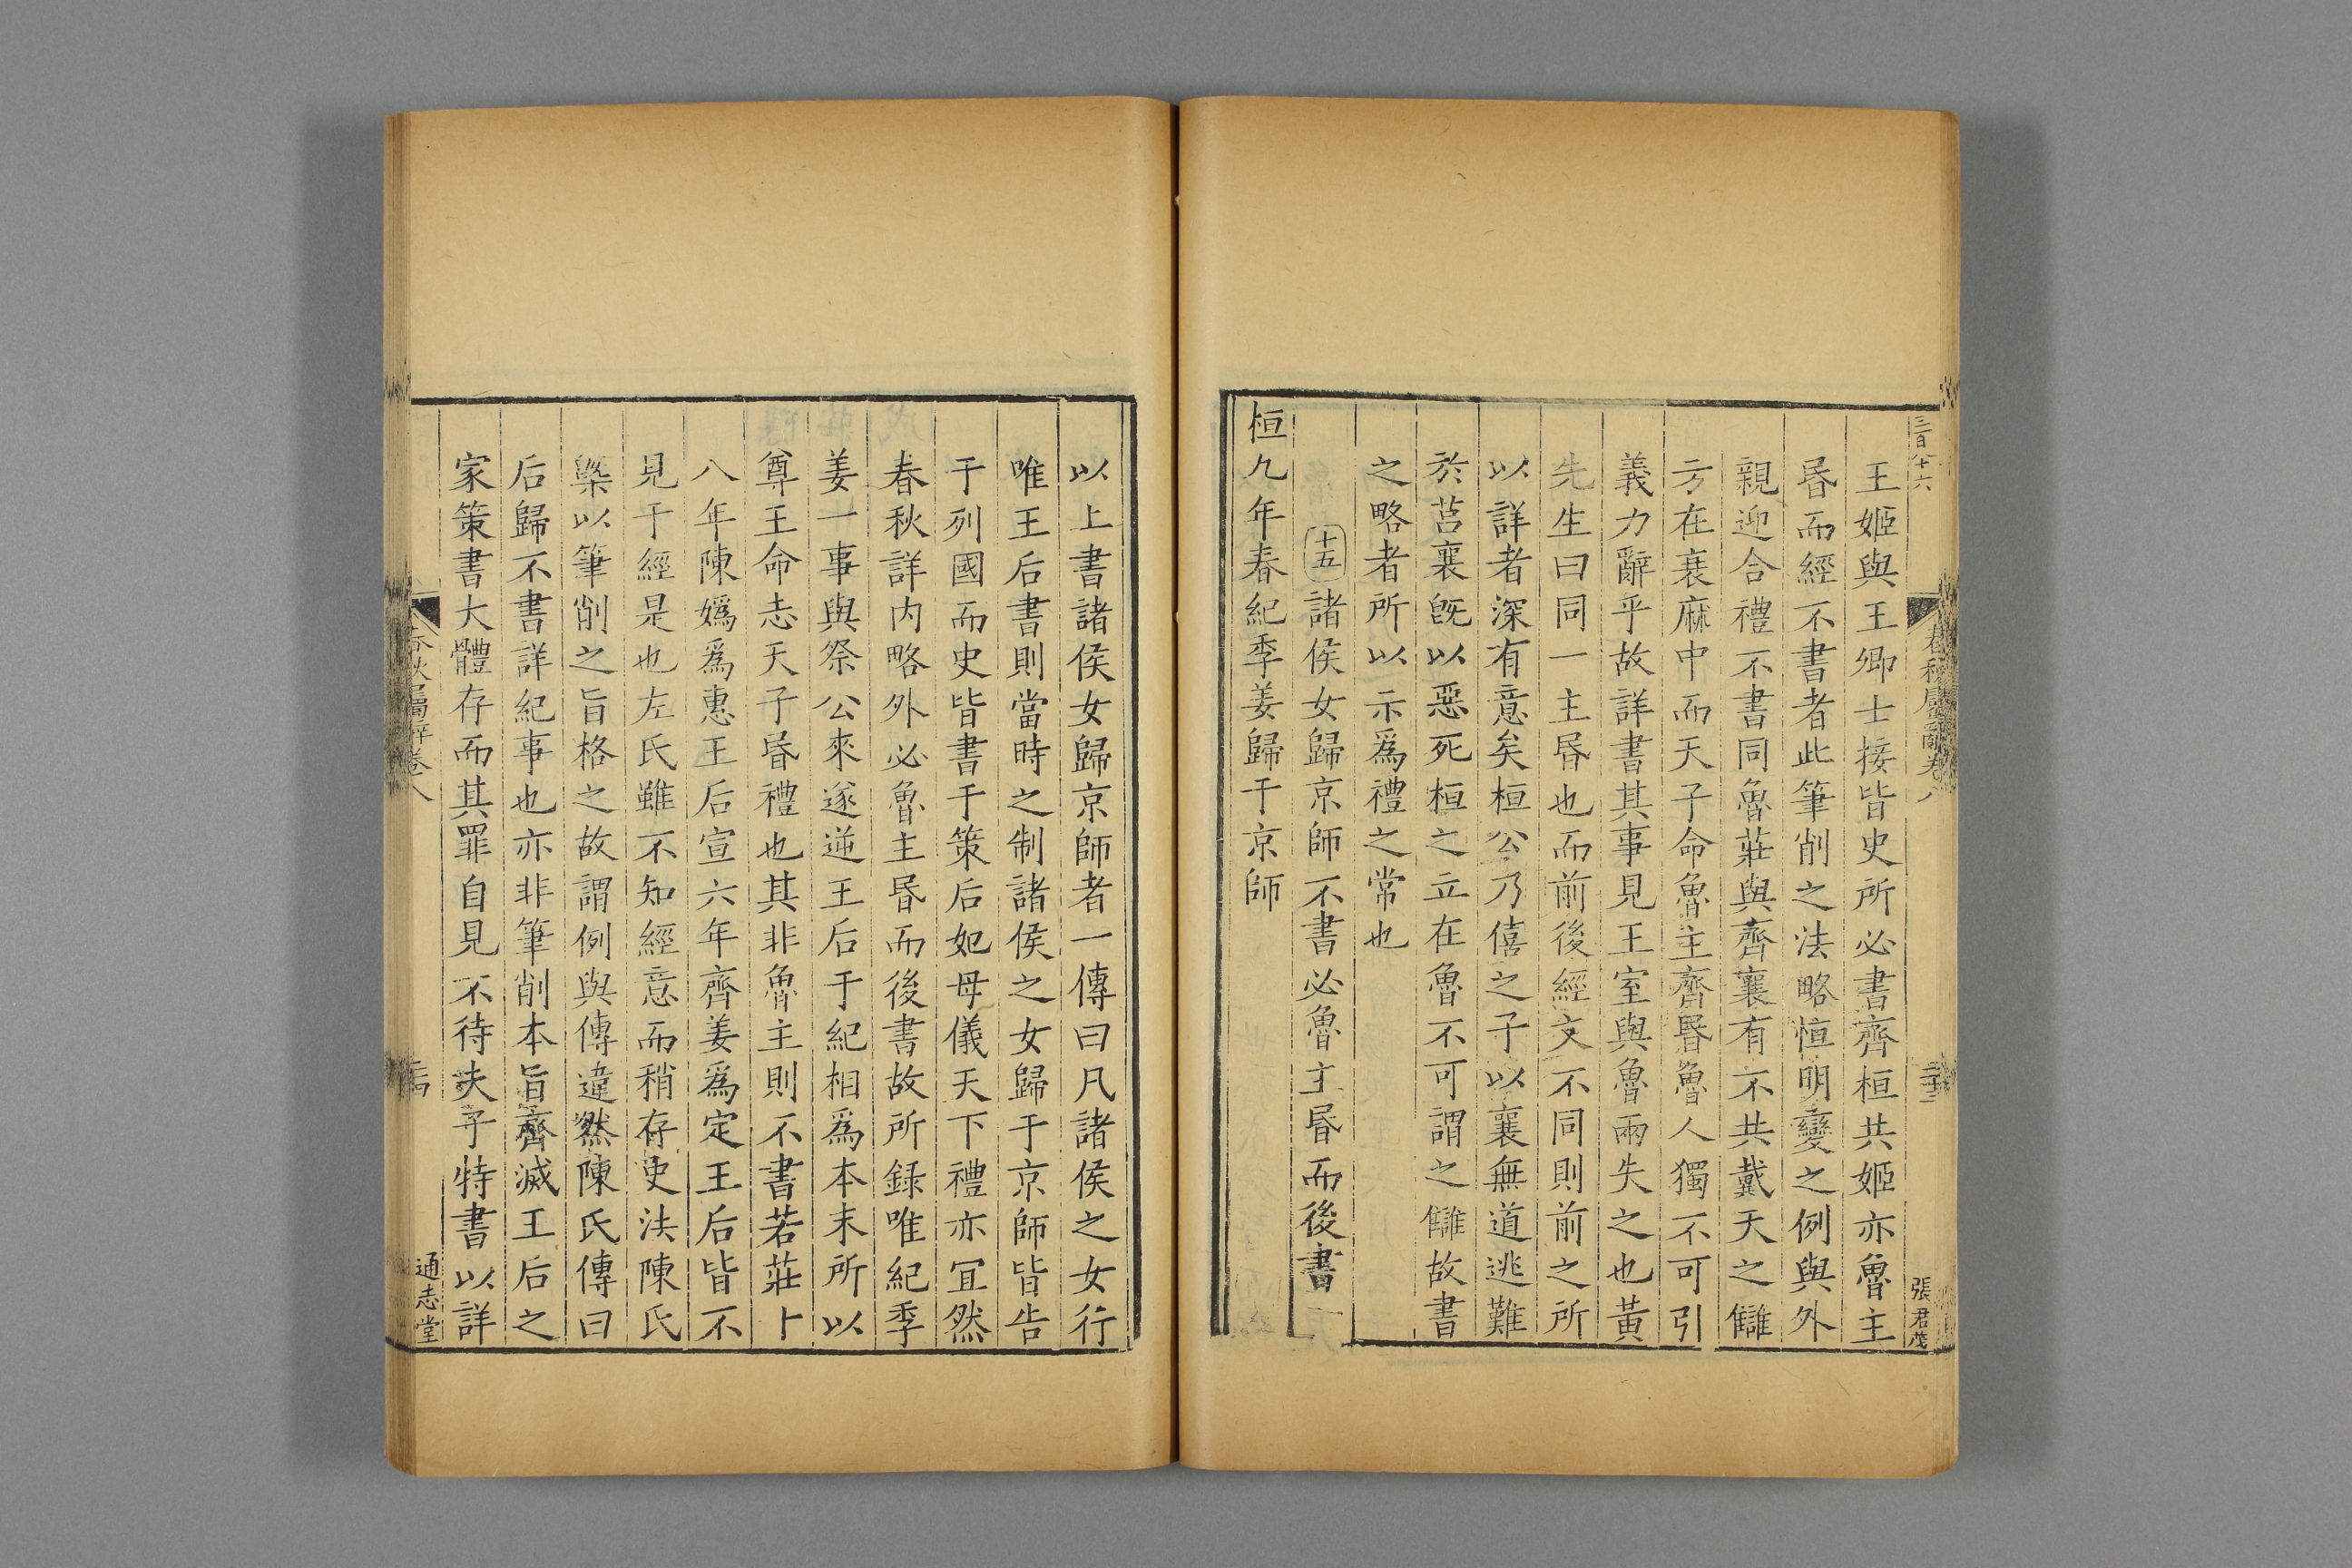 三百八十六
春秋屬辭卷八
張君茂
王姬與王卿士接皆史所必書齊桓共姬亦魯主
昬而經不書者此筆削之法略恒明變之例與外
親迎合禮不書同魯莊與齊襄有不共戴天之讎
方在衰麻中而天子命魯主齊昬魯人獨不可引
義力辭乎故詳書其事見王室與魯兩失之也黃
先生曰同一主昬也而前後經文不同則前之所
以詳者深有意矣桓公乃僖之子以襄無道逃難
於莒襄旣以惡死桓之立在魯不可謂之讎故書
之略者所以示爲禮之常也
十五諸侯女歸京師不書必魯主昬而後書
桓九年春紀季姜歸于京師
以上書諸侯女歸京師者一傳曰凡諸侯之女行
唯王后書則當時之制諸侯之女歸于京師皆告
于列國而史皆書于策后妃母儀天下禮亦宜然
春秋詳内略外必魯主昬而後書故所録唯紀季
姜一事與祭公來遂逆王后于紀相爲本末所以
尊王命志天子昬禮也其非魯主則不書若莊十
八年陳嬀爲惠王后宣六年齊姜爲定王后皆不
見于經是也左氏雖不知經意而稍存史法陳氏
槩以筆削之旨格之故謂例與傳違然陳氏傳曰
后歸不書詳紀事也亦非筆削本旨齊滅王后之
家策書大體存而其罪自見不待夫子特書以詳
春秋屬辭卷八
通志堂